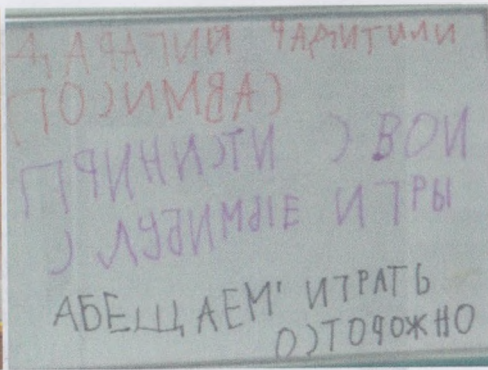 ДАРАГИИ РАДИТИЛИ
ПОСИМВАС
ПРИНИСТИ С ВОИ
С ЛУБИМЫЕ ИГРЫ
АБЕЩАЕМ' ИГРАТЬ
ОСТОРОЖНО